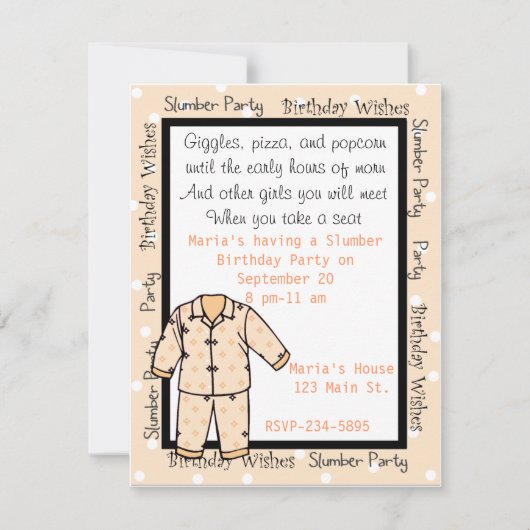 Slumber Party Birthday Wishes
Birthday Wishes
Slumber Party
Giggles, pizza, and popcorn
until the early hours of morn
And other girls you will meet
When you take a seat
Maria's having a Slumber
Birthday Party on
September 20
8 pm-11 am
Maria's House
123 Main St.
RSVP-234-5895
Slumber Party
Birthday Wishes
Birthday Wishes Slumber Party